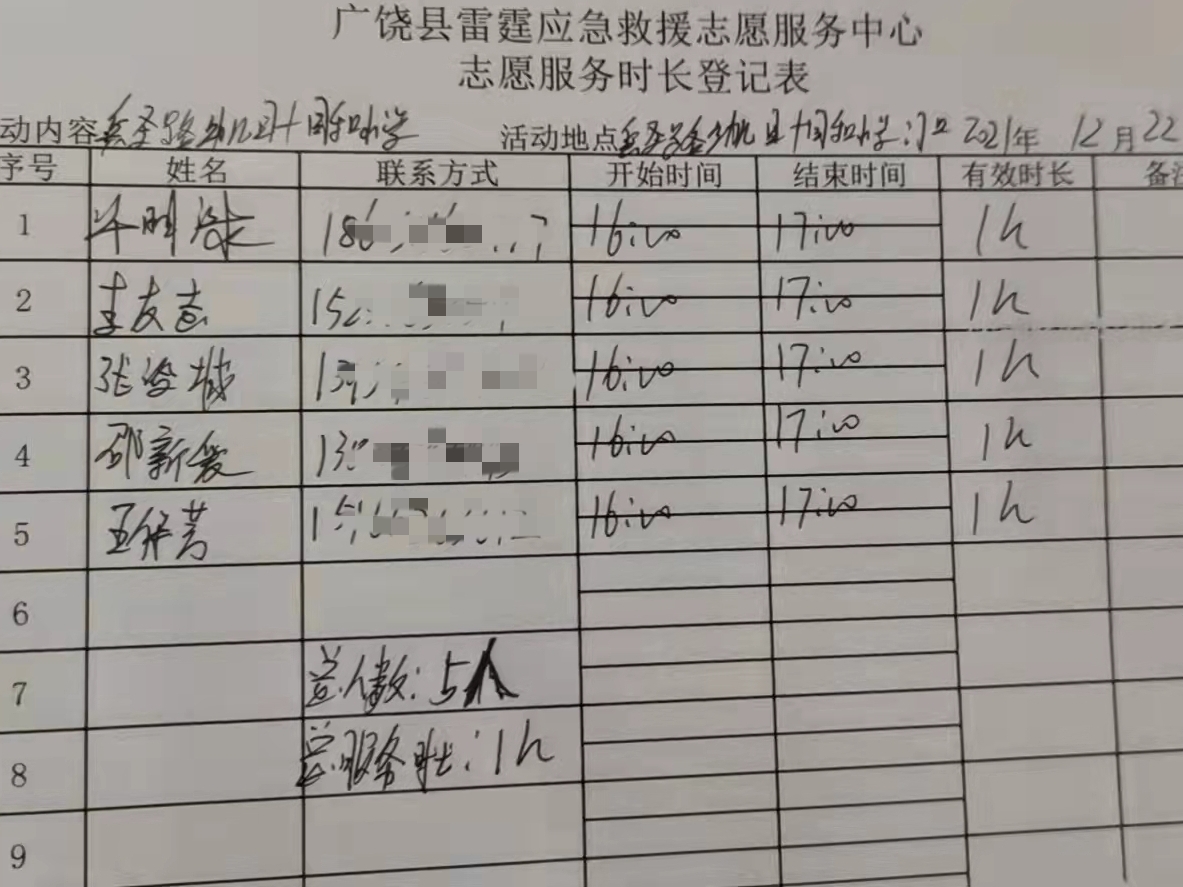 广饶县雷霆应急救援志愿服务中心
志愿服务时长登记表
动内容 路幼儿园十同和小学 活动地点 路幼儿园十同和小学门口 2021年 12月22
序号 姓名 联系方式 开始时间 结束时间 有效时长 备注
1 186 16:00 17:00 1h
2 李友志 15 16:00 17:00 1h
3 张 城 13 16:00 17:00 1h
4 邵新爱 13 16:00 17:00 1h
5 王 芳 15 16:00 17:00 1h
6
7 总人数:5人
8 总服务时长:1h
9